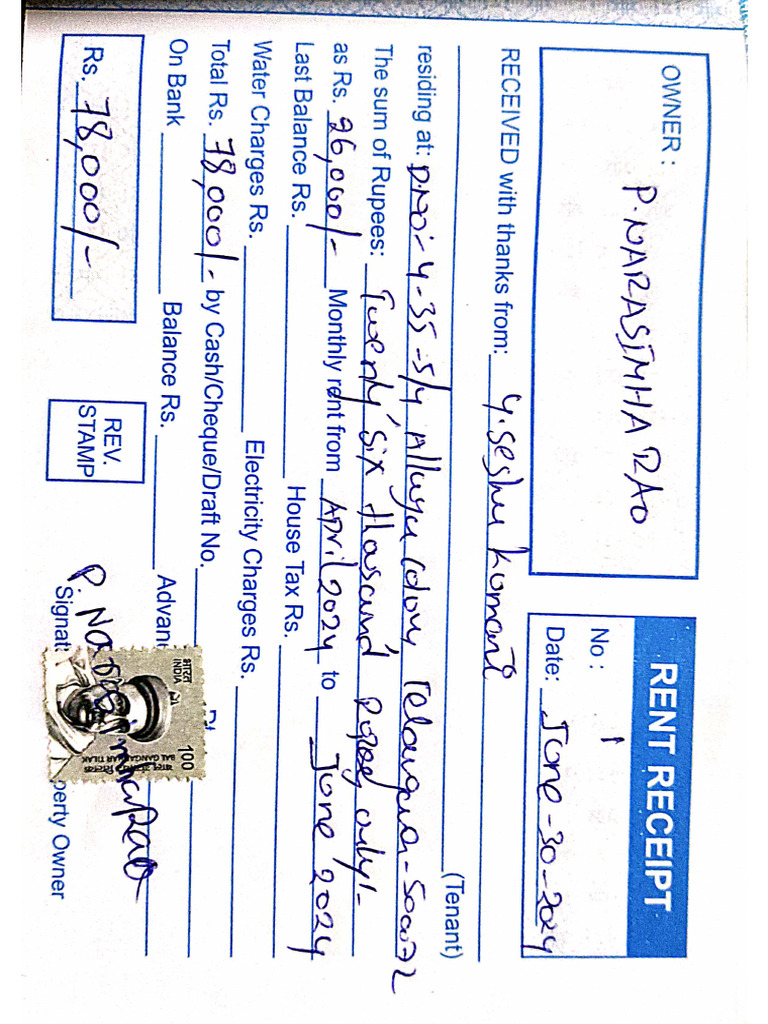 RENT RECEIPT
OWNER :
P. NARASIMHA RAO
No : 1
Date: June-30-2024
RECEIVED with thanks from: Y. Seshu kumari
(Tenant)
residing at: D.NO:- 4-35-5/4 Telangana-500072
The sum of Rupees: Twenty six thousand only/-
as Rs. 26,000/- Monthly rent from April 2024 to June 2024
Last Balance Rs. House Tax Rs.
Water Charges Rs. Electricity Charges Rs.
Total Rs. 78,000/- by Cash/Cheque/Draft No.
On Bank Balance Rs. Advan
Rs. 78,000/-
REV.
STAMP
P. Narasimha Rao
भारत
INDIA
100
BAL GANGADHAR TILAK
Signat perty Owner